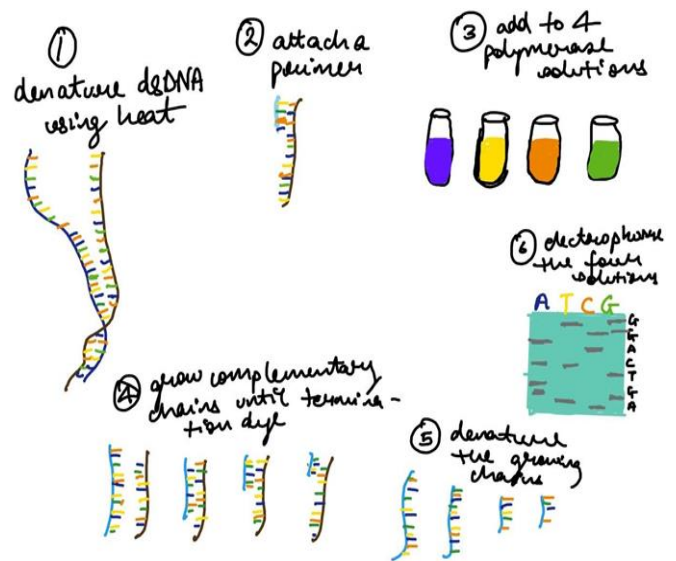 ①
denature dsDNA
using heat
② attach a
primer
③ add to 4
polymerase
solutions
④ grow complementary
chains until termina-
tion dye
⑤ denature
the growing
chains
⑥ electrophorise
the four
solutions
A T C G
G
G
A
C
T
G
A